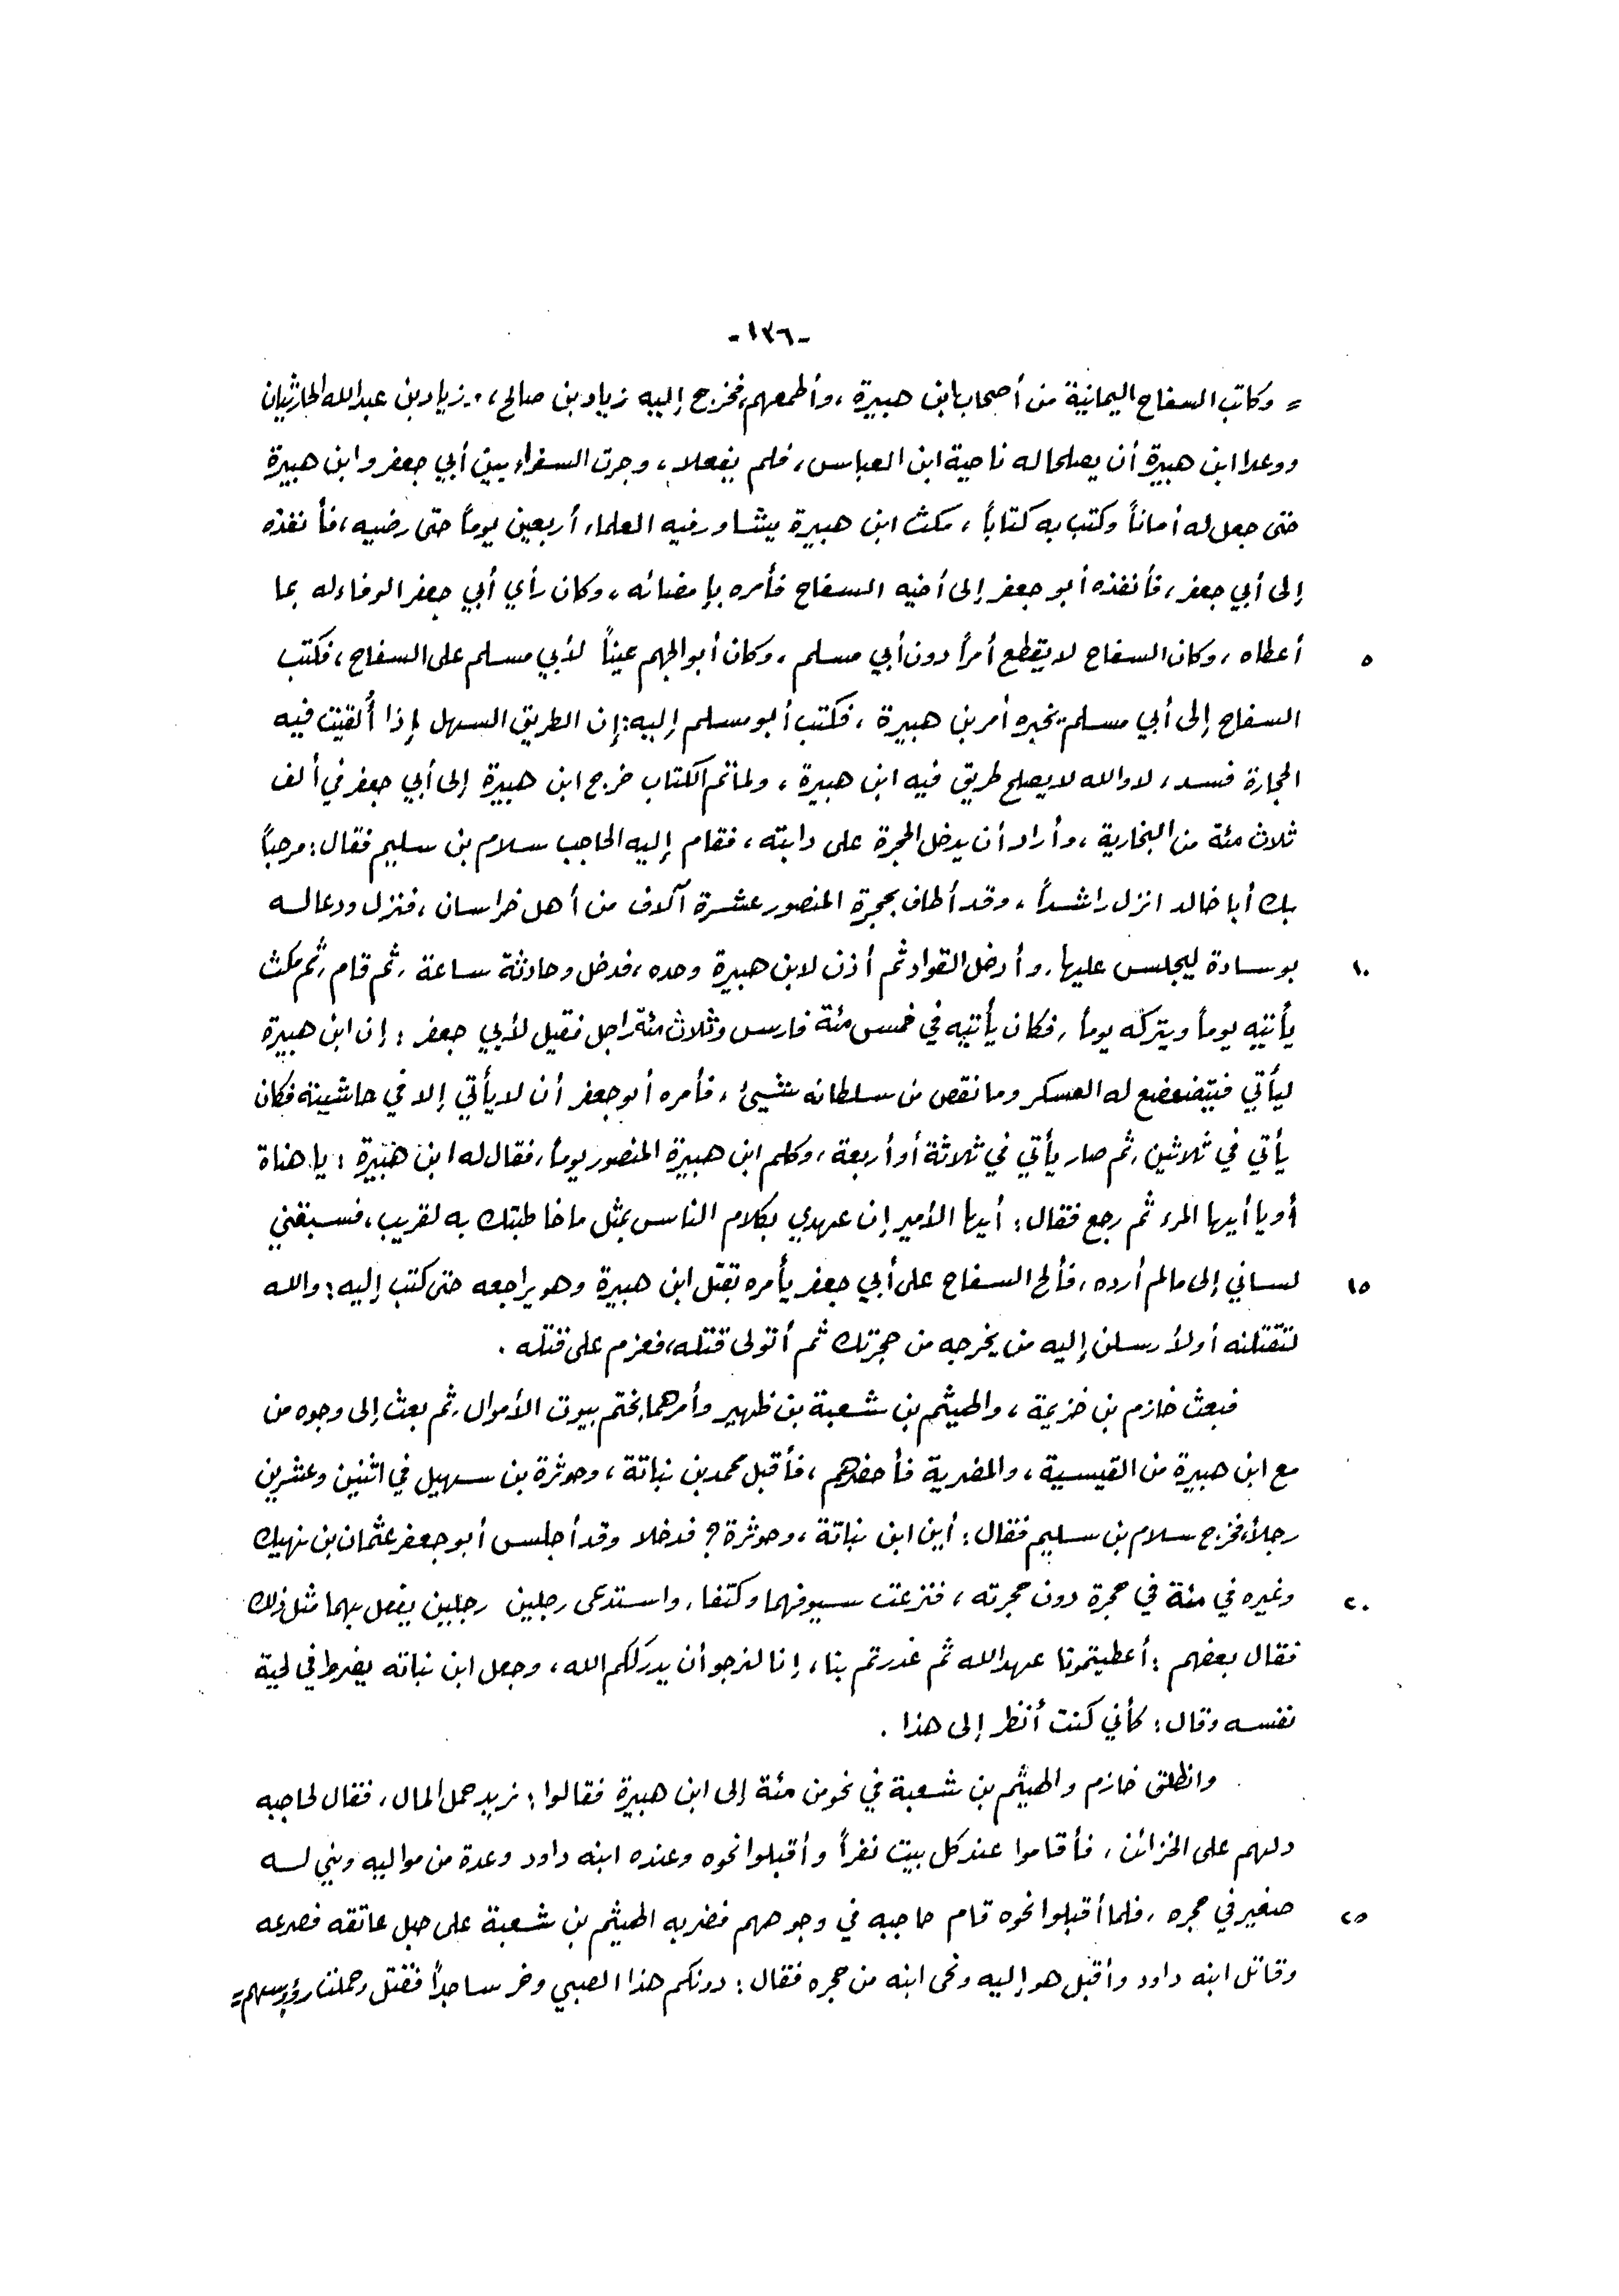 -١٣٦-
= وكاتب السفاح اليمانية من أصحاب ابن هبيرة ، وأطمعهم، فخرج إليه زياد بن صالح ، وزياد بن عبد الله الحارثيان
ووعدا ابن هبيرة أن يصلحا له ناحية ابن العباس ، فلم يفعلا ، وجرت السفراء بين أبي جعفر وابن هبيرة
حتى جعل له أماناً وكتب به كتاباً ، مكث ابن هبيرة يشاور فيه العلماء أربعين يوماً حتى رضيه ، فأنفذه
إلى أبي جعفر ، فأنفذه أبو جعفر إلى أخيه السفاح فأمره بإمضائه ، وكان رأي أبي جعفر الوفاء له بما
أعطاه ، وكان السفاح لا يقطع أمراً دون أبي مسلم ، وكان أبو الجهم عيناً لأبي مسلم على السفاح ، فكتب ٥
السفاح إلى أبي مسلم يخبره أمر بن هبيرة ، فكتب أبو مسلم إليه : إن الطريق السهل إذا أُلقيت فيه
الحجارة فسد ، لا والله لا يصلح طريق فيه ابن هبيرة ، ولما تم الكتاب خرج ابن هبيرة إلى أبي جعفر في ألف
ثلاث مئة من البخارية ، وأراد أن يدخل الحجرة على دابته ، فقام إليه الحاجب سلام بن سليم فقال : مرحباً
بك أبا خالد انزل راشداً ، وقد أطاف بحجرة المنصور عشرة آلاف من أهل خراسان ، فنزل ودعا له
بوسادة ليجلس عليها ، وأدخل القواد ثم أذن لابن هبيرة وحده ، فدخل وحادثة ساعة ، ثم قام ، ثم مكث ١٠
يأتيه يوماً ويتركه يوماً ، فكان يأتيه في خمس مئة فارس وثلاث مئة راجل فقيل لأبي جعفر : إن ابن هبيرة
ليأتي فيتضعضع له العسكر وما نقص من سلطانه شيئ ، فأمره أبو جعفر أن لا يأتي إلا في حاشيته فكان
يأتي في ثلاثين ، ثم صار يأتي في ثلاثة أو أربعة ، وكلم ابن هبيرة المنصور يوماً ، فقال له ابن هبيرة : يا هناة
أو يا أيها المرء ثم رجع فقال : أيها الأمير إن عهدي بكلام الناس بمثل ما خاطبتك به لقريب ، فسبقني
لساني إلى مالم أرده ، فألح السفاح على أبي جعفر يأمره بقتل ابن هبيرة وهو يراجعه حتى كتب إليه : والله ١٥
لتقتلنه أو لأرسلن إليه من يخرجه من حجرتك ثم أتولى قتله ، فعزم على قتله .
فبعث خازم بن خزيمة ، والهيثم بن شعبة بن ظهير وأمرهما بختم بيوت الأموال ، ثم بعث إلى وجوه من
مع ابن هبيرة من القيسية ، والمضرية فأحضرهم ، فأقبل محمد بن نباتة ، وحوثرة بن سهيل في اثنين وعشرين
رجلاً، فخرج سلام بن سليم فقال : أين ابن نباتة ، وحوثرة ؟ فدخلا وقد أجلس أبو جعفر عثمان بن نهيك
وغيره في مئة في حجرة دون حجرته ، فنزعت سيوفهما وكتفا ، واستدعى رجلين رجلين يفعل بهما مثل ذلك ٢٠
فقال بعضهم : أعطيتمونا عهد الله ثم غدرتم بنا ، إنا لنرجو أن يدرككم الله ، وجعل ابن نباته يضرط في لحية
نفسه وقال : كأني كنت أنظر إلى هذا .
وانطلق خازم والهيثم بن شعبة في نحو من مئة إلى ابن هبيرة فقالوا : نريد حمل المال ، فقال لحاجبه
دلهم على الخزائن ، فأقاموا عند كل بيت نفراً وأقبلوا نحوه وعنده ابنه داود وعدة من مواليه وبني له
صغير في حجره ، فلما أقبلوا نحوه قام حاجبه في وجوههم فضربه الهيثم بن شعبة على حبل عاتقه فصرعه ٢٥
وقاتل ابنه داود وأقبل هو إليه ونحى ابنه من حجره فقال : دونكم هذا الصبي وخر ساجداً فقتل وحملت رؤوسهم =